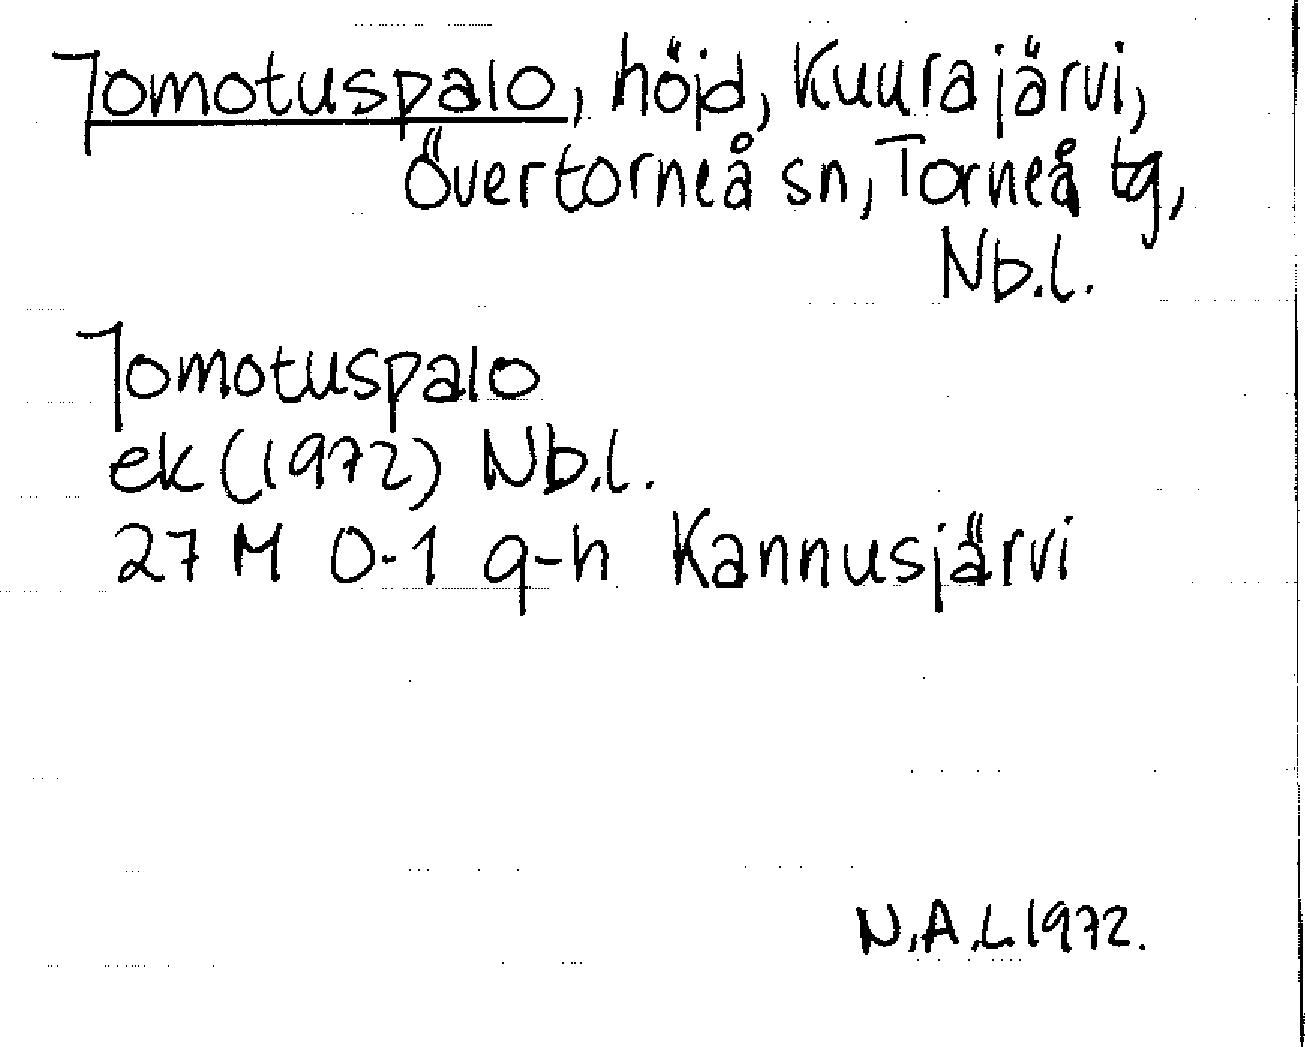 Jomotuspalo, höjd, Kuurajärvi,
Övertorneå sn, Torneå tg,
Nb.l.
Jomotuspalo
ek (1972) Nb.l.
27 M 0-1 g-h Kannusjärvi
N.A.L. 1972.